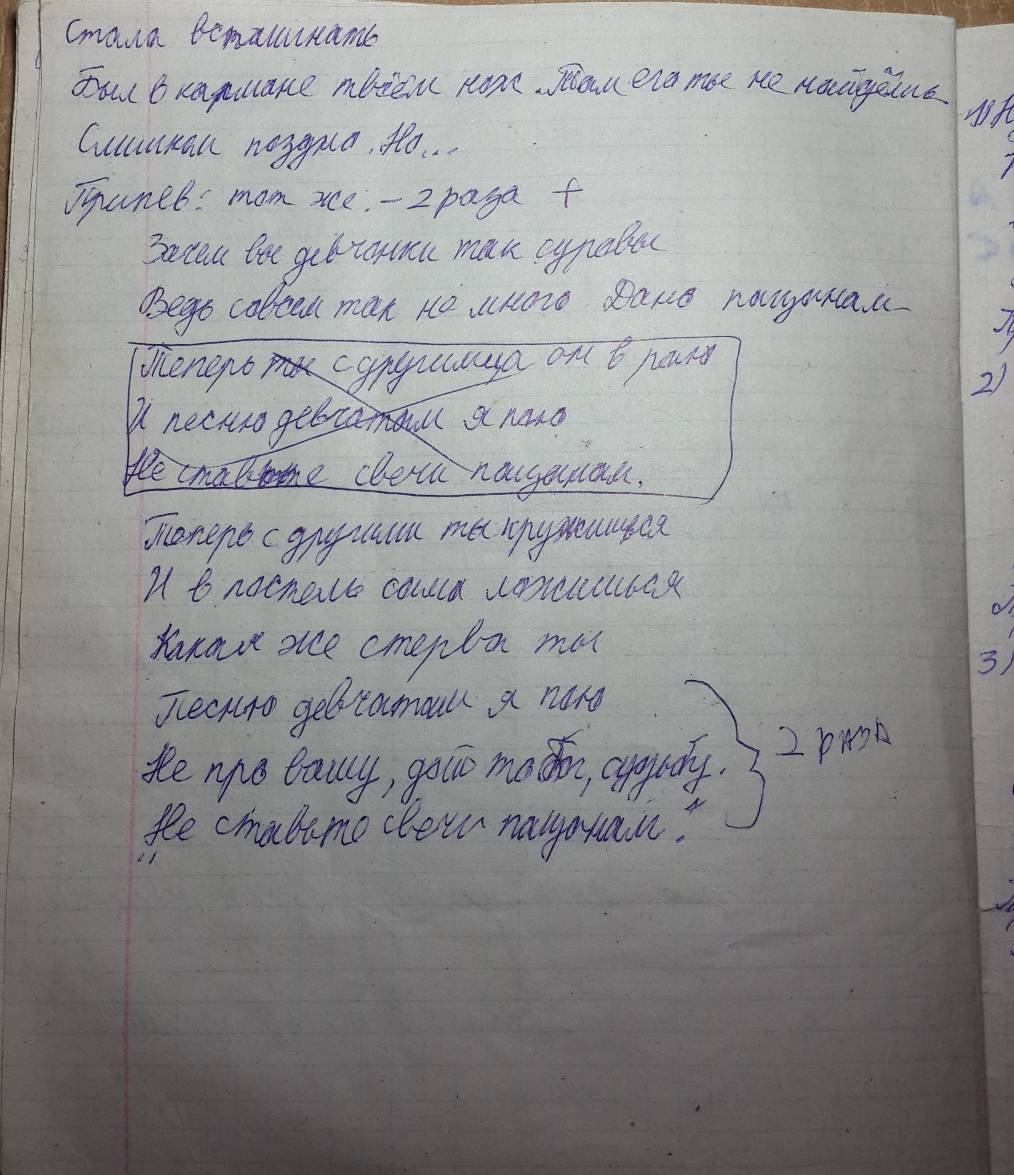 Стала вспаминать
Был в кармане твоём нож. Там его ты не найдёшь
Слишком поздно. Но...
Припев: тот же. - 2 раза +
Зачем вы девчонки так суровы
Ведь совсем так не много Дано пацанам
Теперь ты с другими а он в раю
И песню девчатам я пою
Не ставьте свечи пацанам.
Теперь с другими ты кружишься
И в постель сама ложишься
Какая же стерва ты
Песню девчатам я пою
Не про вашу, дай то Бог, судьбу.
"Не ставьте свечи пацанам."
2 раза
1)
2)
3)